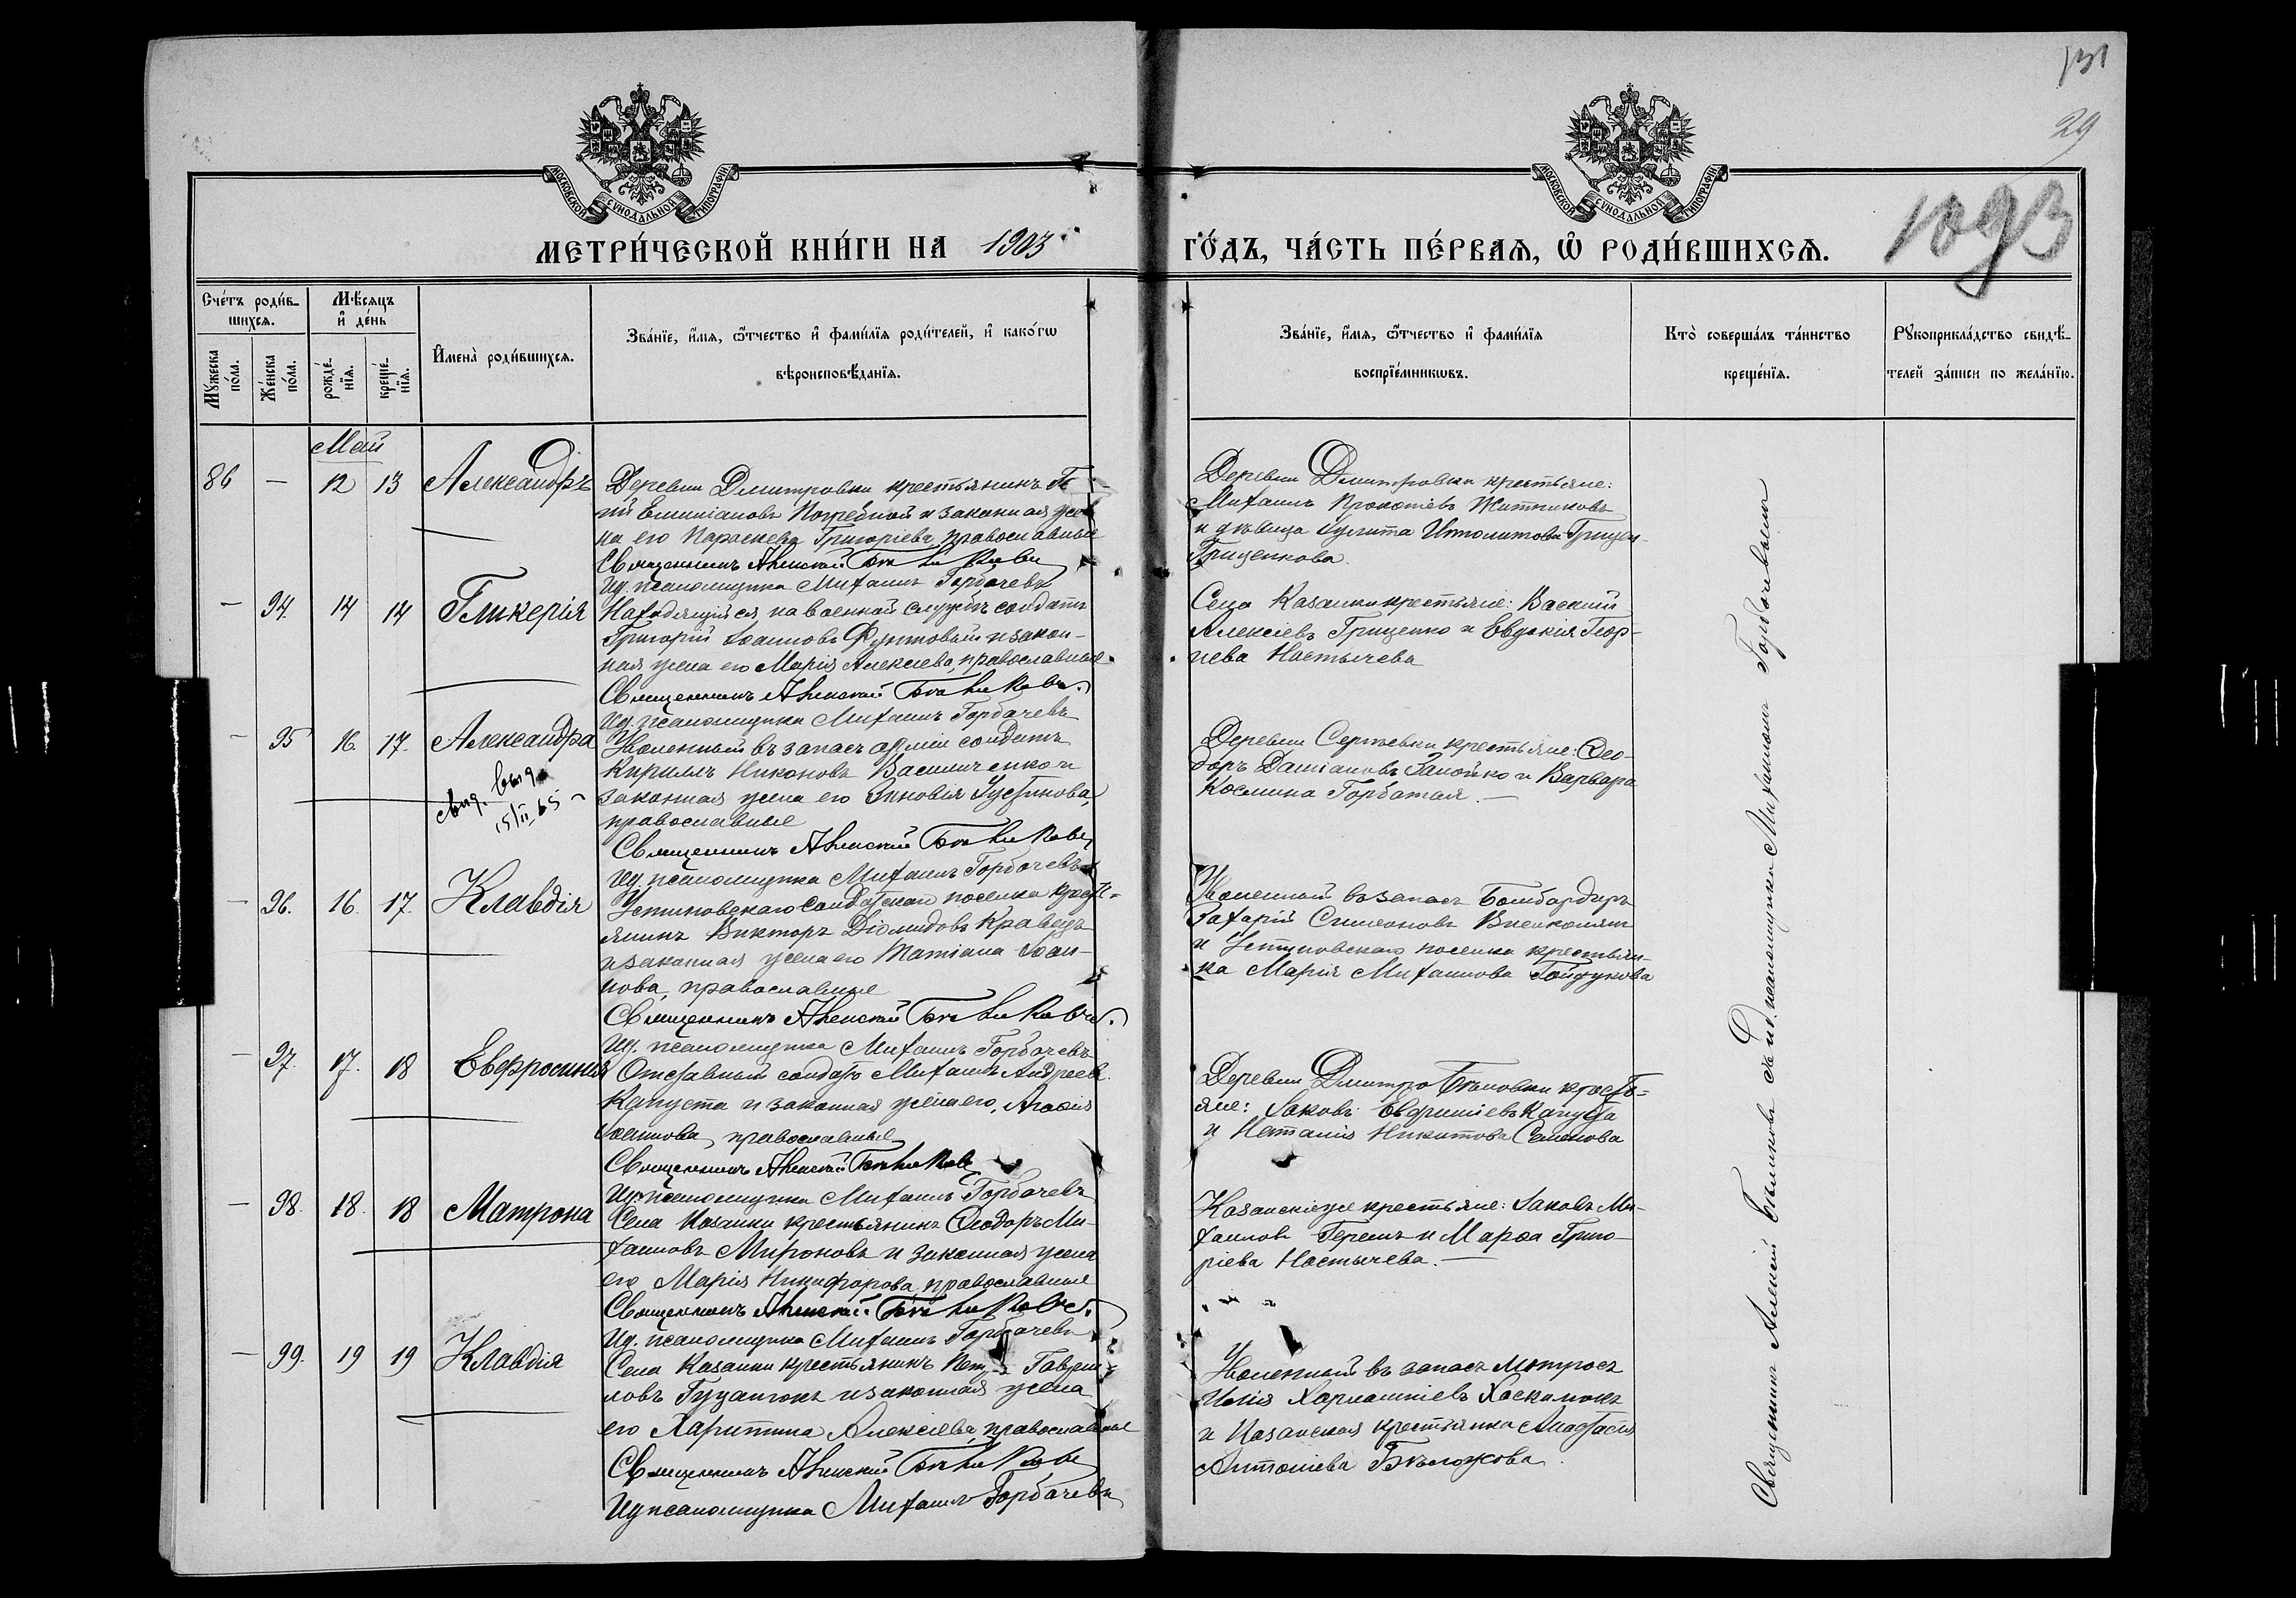 131
29
1093
МОСКОВСКОЙ СѴНОДАЛЬНОЙ ТИПОГРАФІИ
МОСКОВСКОЙ СѴНОДАЛЬНОЙ ТИПОГРАФІИ
МЕТРИ́ЧЕСКОЙ КНИ́ГИ НА 1903
ГО́ДЪ, ЧА́СТЬ ПЕ́РВАЯ, Ѡ РОДИ́ВШИХСЯ.
Сче́тъ роди́в-
шихся.
Мѣ́сяцъ
и де́нь
Му́жеска
по́ла.
Же́нска
по́ла.
рожде́-
нїя.
креще́-
нїя.
Имена̀ роди́вшихся.
Зва́нїе, и́мя, ѻ́тчество и фами́лїя роди́телей, и како́гѡ
вѣроисповѣ́данїя.
Зва́нїе, и́мя, ѻ́тчество и фами́лїя
воспрїе́мникѡвъ.
Кто̀ соверша́лъ та́инство
креще́нїя.
Рукоприкла́дство свидѣ́-
телей за́писи по жела́нїю.
Май
86 — 12 13 Александръ
Деревни Дмитровки крестьянинъ
Емиліановъ Погребной и законная же-
на его Параскева Григоріева, православные
Священникъ Алексій Бѣликовъ
Ид. псаломщика Михаилъ Горбачевъ
Деревни Дмитровки крестьяне:
Михаилъ Прокопіевъ Житниковъ
и дѣвица Іулита Ипполитова Грицен-
Гриценкова.
— 94. 14 14 Гликерія
Находящійся на военной службѣ солдатъ
Григорій Іоанновъ Фунтовый и закон-
ная жена его Марія Алексіева, православные.
Священникъ Алексій Бѣликовъ.
Ид. псаломщика Михаилъ Горбачевъ
Села Казанки крестьяне: Василій
Алексіевъ Гриценко и Евдокія Геор-
гіева Настычева
— 95 16. 17. Александра
свид. выд.
15/II 65
Уволенный въ запасъ арміи солдатъ
Кириллъ Никоновъ Василиченко и
законная жена его Зиновія Іустинова,
православные
Священникъ Алексій Бѣликовъ
Ид. псаломщика Михаилъ Горбачевъ
Деревни Сергѣевки крестьяне: Ѳео-
доръ Даміановъ Запойко и Варвара
Космина Горбатая. —
— 96. 16. 17. Клавдія
Устиновскаго Солдатскаго поселка крест-
янинъ Викторъ Діомидовъ Кравецъ
и законная жена его Татіана Іоан-
нова, православные
Священникъ Алексій Бѣликовъ.
Ид. псаломщика Михаилъ Горбачевъ
Уволенный въ запасъ Бомбардиръ
Захарій Симеоновъ
и Устиновскаго поселка крестьян-
ка Марія Михаилова Гайдукова
— 97. 17. 18 Евфросинія
Отставный солдатъ Михаилъ Андреев.
Капуста и законная жена его, Агаѳія
Іоаннова, православные
Священникъ Алексій Бѣликовъ
Ид. псаломщика Михаилъ Горбачевъ
Деревни Дмитро Бѣловки кресть-
яне: Іаковъ Евфиміевъ Капуста
и Наталія Никитова Семенова
— 98. 18. 18 Матрона
Села Казанки крестьянинъ Ѳеодоръ Ми-
хаиловъ Мироновъ и законная жена
его Марія Никифорова, православные
Священникъ Алексій Бѣликовъ.
Ид. псаломщика Михаилъ Горбачевъ
Казанскіе же крестьяне: Іаковъ Ми-
хаиловъ и Марѳа Григо-
ріева Настычева. —
— 99. 19 19 Клавдія
Села Казанки крестьянинъ Петръ Гаврии-
ловъ и законная жена
его Харитина Алексіева, православные
Священникъ Алексій Бѣликовъ
Ид псаломщика Михаилъ Горбачевъ
Уволенный въ запасъ Матросъ
Илія Харлампіевъ
и Казанская крестьянка Анастасія
Антоніева
Священникъ Алексій Бѣликовъ съ ид. псаломщика Михаиломъ Горбачевымъ